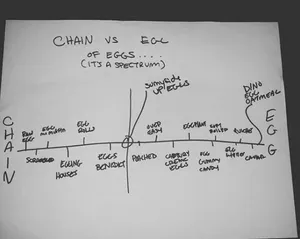 CHAIN VS EGG
OF EGGS....
(IT'S A SPECTRUM)
SUNNYSIDE
UP EGGS
DINO
EGG
OATMEAL
CHAIN
RAW
EGG
SCRAMBLED
EGG
EGGING
HOUSES
EGG
ROLLS
EGGS
BENEDICT
POACHED
OVER
EASY
CADBURY
CREME
EGGS
EGGPLANT
EGG
GUMMY
CANDY
SOFT
BOILED
QUICHE
EGG
CAVIAR
EGG